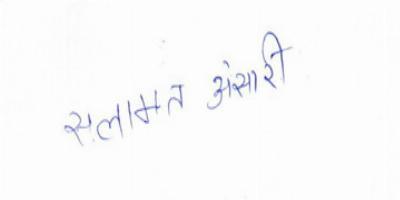 सलामत अंसारी